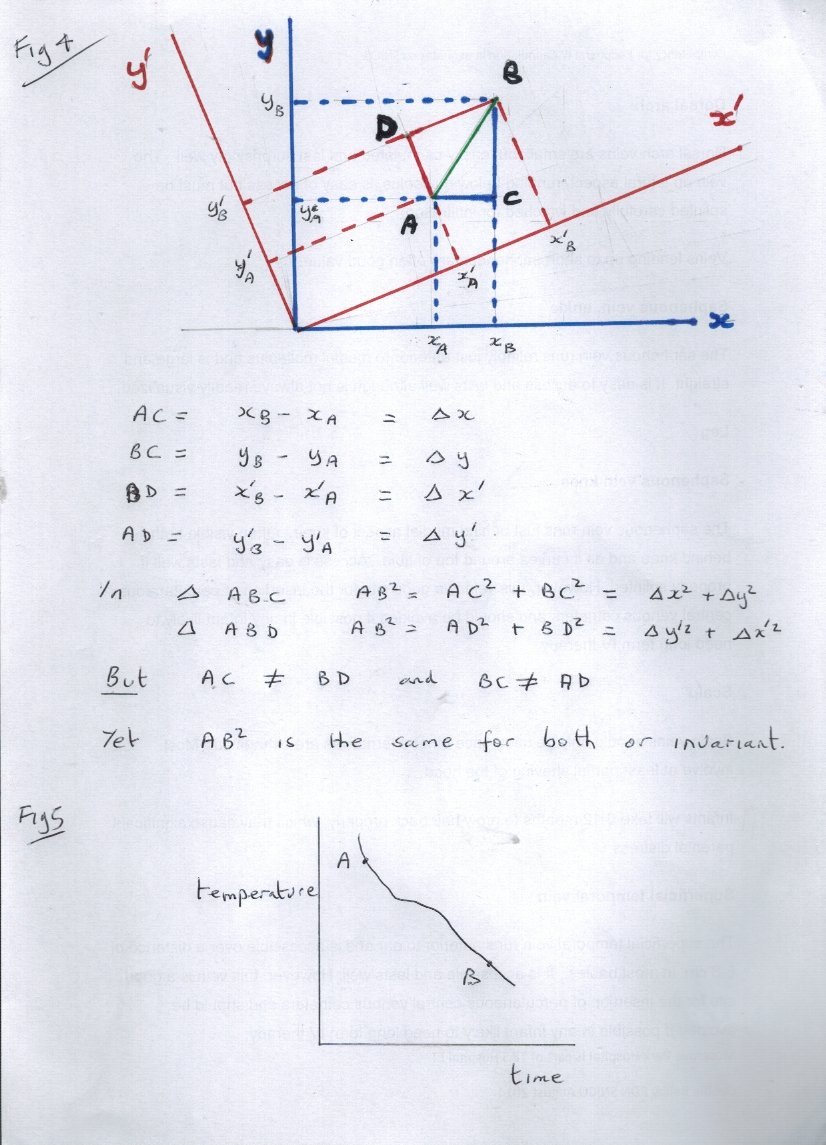 Fig 4
y'
y
B
x'
y_B
D
y'_B
y_A
A
C
x'_B
y'_A
x'_A
x
x_A
x_B
AC = x_B - x_A = Δx
BC = y_B - y_A = Δy
BD = x'_B - x'_A = Δx'
AD = y'_B - y'_A = Δy'
In Δ ABC AB² = AC² + BC² = Δx² + Δy²
Δ ABD AB² = AD² + BD² = Δy'² + Δx'²
But AC ≠ BD and BC ≠ AD
Yet AB² is the same for both or invariant.
Fig 5
A
temperature
B
time